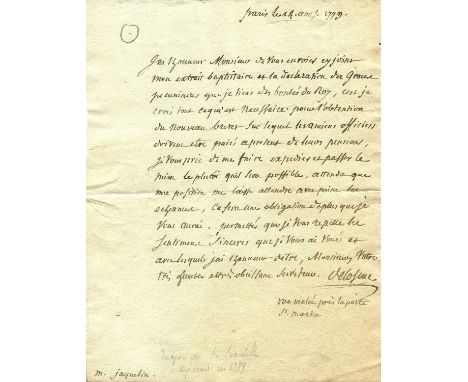 paris le 1779
J'ai l'honneur Monsieur de vous envoier cy joint
mon extrait baptistaire et la declaration des Graces
pecuniaires que je tiens des bontés du Roy, c'est je
crois tout ce qui est necessaire pour l'obtention
du nouveau brevet sur lequel les anciens officiers
doivent etre paiés apresent de leurs pensions,
je vous prie de me faire expedier et passer le
mien le plutôt qu'il sera possible, attendu que
ma position me laisse attendre avec peine les
echeance, ce sera une obligation de plus que je
vous aurai, permettés que je vous repette les
sentimens sinceres que je vous ai voués et
avec lesquels j'ai l'honneur d'etre, Monsieur, Votre
très humble et très obeissant serviteur. Delosme
rue meslée près la porte
St. martin
de la Bastille
en 1789
m. jaquelin.